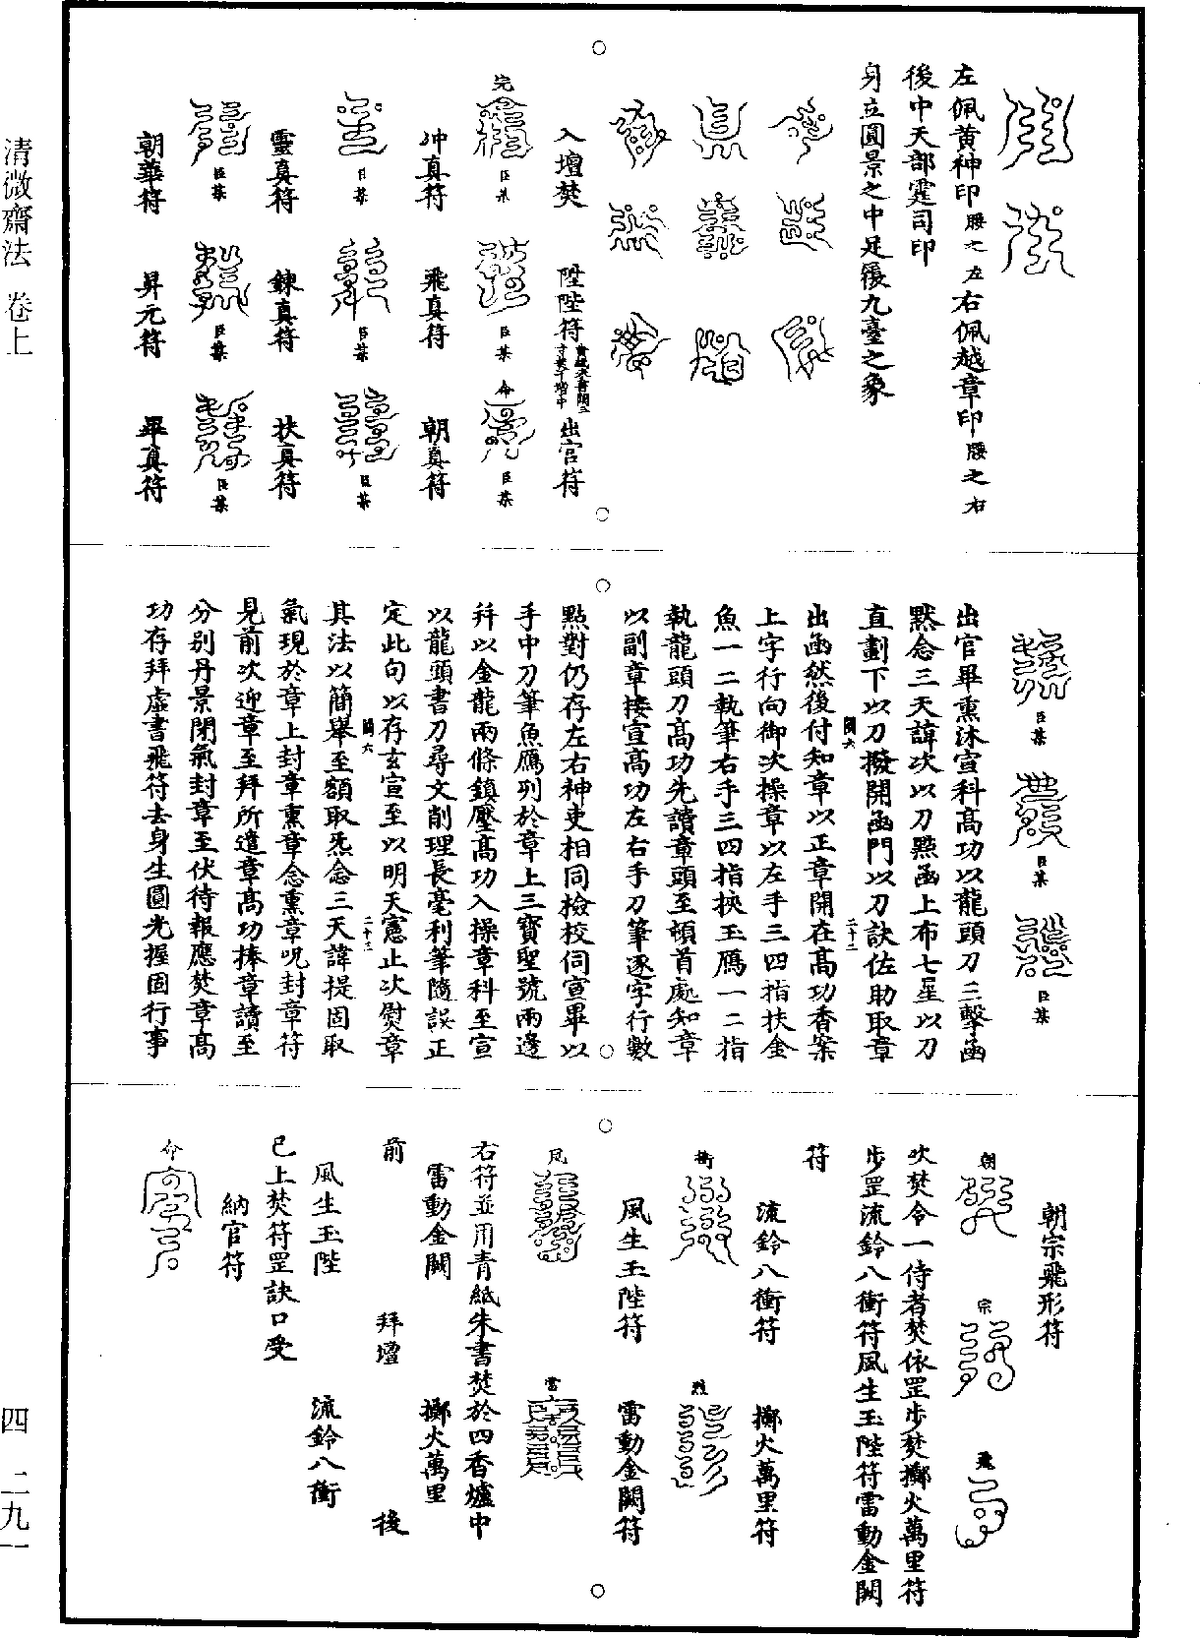 清微齋法 卷上
四 二九一
左佩黃神印腰之左右佩越章印腰之右
後中天部霆司印
身立圓景之中足履九臺之象
入壇焚 陞陛符 出官符
完 臣某 臣某 命 臣某
冲真符 飛真符 朝真符
臣某 臣某 臣某
靈真符 鍊真符 扶真符
臣某 臣某 臣某
朝華符 昇元符 畢真符
臣某 臣某 臣某
出官畢熏沐宣科高功以龍頭刀三擊函
默念三天諱次以刀點函上布七星以刀
直劃下以刀撥開函門以刀訣佐助取章
二十二
出函然後付知章以正章開在高功香案
上字行向御次操章以左手三四指扶金
魚一二執筆右手三四指挾玉鴈一二指
執龍頭刀高功先讀章頭至頓首處知章
以副章接宣高功左右手刀筆逐字行數
點對仍存左右神吏相同檢校伺宣畢以
手中刀筆魚鴈列於章上三寶聖號兩邊
并以金龍兩條鎮壓高功入操章科至宣
以龍頭書刀尋文削理長毫利筆隨誤正
定此句以存玄宣至以明天憲止次熨章
六 二十三
其法以簡舉至額取炁念三天諱提固取
氣現於章上封章熏章念熏章呪封章符
見前次迎章至拜所進章高功捧章讀至
分别丹景閉氣封章至伏待報應焚章高
功存拜虛書飛符去身生圓光握固行事
朝宗飛形符
朝 宗 飛
次焚令一侍者焚依罡步焚擲火萬里符
步罡流鈴八衝符風生玉陛符雷動金闕
符
流鈴八衝符 擲火萬里符
衝 烈
風生玉陛符 雷動金闕符
風 雷
右符並用青紙朱書焚於四香爐中
雷動金闕 擲火萬里
前 拜壇 後
風生玉陛 流鈴八衝
已上焚符罡訣口受
納官符
命